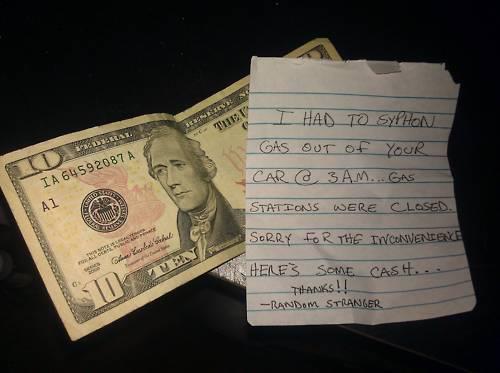 10
FEDERAL RESERVE
THE U
IA64592087A
A1
THIS NOTE IS LEGAL TENDER
FOR ALL DEBTS, PUBLIC AND PRIVATE
SERIES
10
TEN
I HAD TO SYPHON
GAS OUT OF YOUR
CAR @ 3AM... GAS
STATIONS WERE CLOSED.
SORRY FOR THE INCONVENIENCE
HERE'S SOME CASH...
THANKS!!
-RANDOM STRANGER